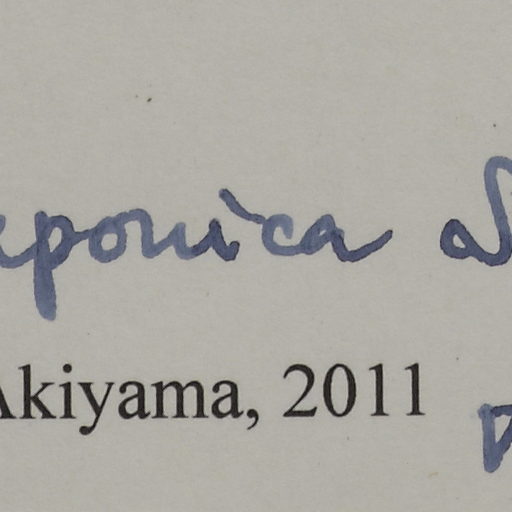 aponica S
Akiyama, 2011